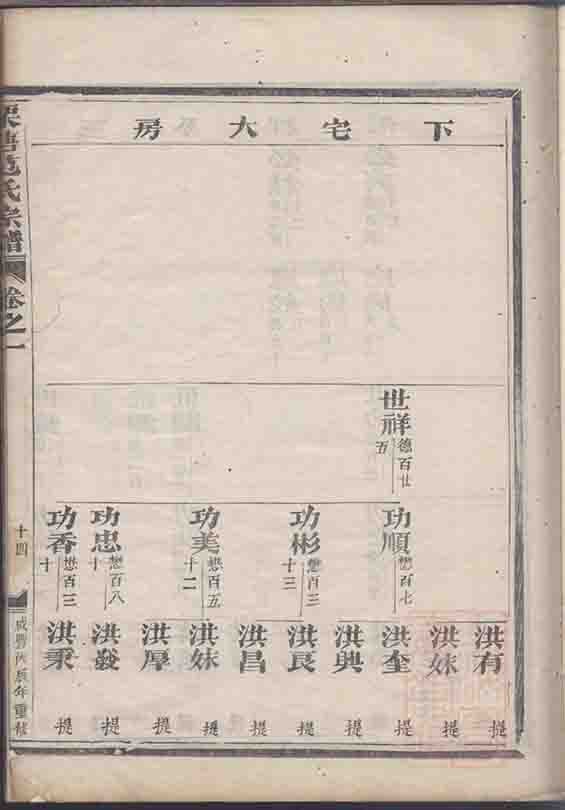 下宅大房
世祥 德百廿五
功順 懋百七
功彬 懋百三十三
功美 懋百五十二
功忠 懋百八十
功香 懋百三十
洪有 提
洪妹 提
洪奎 提
洪興 提
洪良 提
洪昌 提
洪妹 提
洪厚 提
洪發 提
洪秉 提
范氏宗譜 卷之一
十四
咸豐丙辰年重修